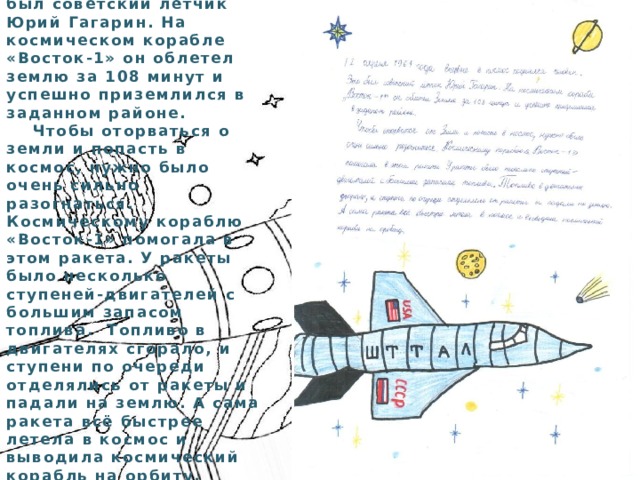 был советский летчик
Юрий Гагарин. На
космическом корабле
«Восток-1» он облетел
землю за 108 минут и
успешно приземлился в
заданном районе.
Чтобы оторваться о
земли и попасть в
космос, нужно было
очень сильно
разогнаться.
Космическому кораблю
«Восток-1» помогала в
этом ракета. У ракеты
было несколько
ступеней-двигателей с
большим запасом
топлива. Топливо в
двигателях сгорало, и
ступени по очереди
отделялись от ракеты и
падали на землю. А сама
ракета всё быстрее
летела в космос и
выводила космический
корабль на орбиту.
12 апреля 1961 года впервые в космос
Это был советский летчик Юрий Гагарин. На космическом корабле
"Восток-1" он облетел Землю за 108 минут и успешно приземлился
в заданном районе.
Чтобы оторваться от Земли и попасть в космос, нужно было
очень сильно разогнаться. Космическому кораблю "Восток-1"
помогала в этом ракета. У ракеты было несколько ступеней-
двигателей с большим запасом топлива. Топливо в двигателях
и ступени по очереди отделялись от ракеты и падали на землю.
А сама ракета все быстрее летела в космос и выводила космический
корабль на орбиту.
USA
ШТТАЛ
СССР